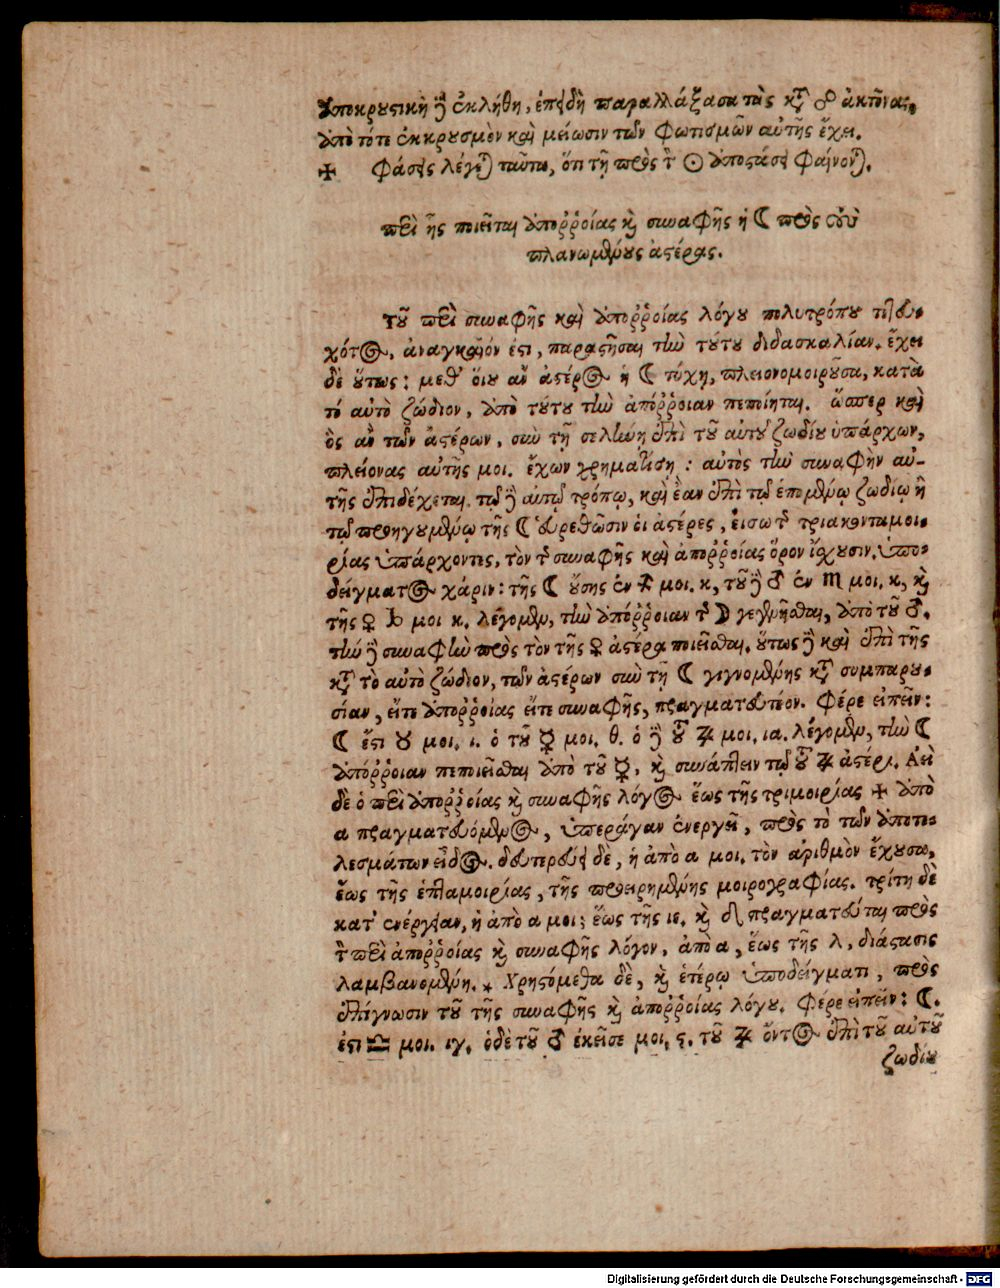 ἀποκρουστικὴ δὲ ἐκλήθη, ἐπειδὴ παραλλάξασα τὰς κατὰ ☍ ἀκτῖνας,
ἀπὸ τότε ἐκκρουσμὸν καὶ μείωσιν τῶν φωτισμῶν αὐτῆς ἔχει.
✠ Φάσεις λέγεται ταῦτα, ὅτι τῇ πρὸς τὸν ☉ ἀποστάσει φαίνονται.
περὶ ἧς ποιεῖται ἀποῤῥοίας καὶ συναφῆς ἡ ☾ πρὸς τοὺς
πλανωμένους ἀστέρας.
Τοῦ περὶ συναφῆς καὶ ἀποῤῥοίας λόγου πολυτρόπου
χότος, ἀναγκαῖόν ἐστι, παραστῆσαι τὴν τούτου διδασκαλίαν. ἔχει
δὲ οὕτως: μεθ' οἵου ἂν ἀστέρος ἡ ☾ τύχῃ, πλειονομοιροῦσα, κατὰ
τὸ αὐτὸ ζώδιον, ἀπὸ τούτου τὴν ἀπόῤῥοιαν πεποίηται. ὥσπερ καὶ
ὃς ἂν τῶν ἀστέρων, σὺν τῇ σελήνῃ ἐπὶ τοῦ αὐτοῦ ζωδίου ὑπάρχων,
πλείονας αὐτῆς μοι. ἔχων χρηματίσῃ: αὐτὸς τὴν συναφὴν αὐ-
τῆς ἐπιδέχεται. τῷ δὲ αὐτῷ τρόπῳ, καὶ ἐὰν ἐπὶ τῷ ἑπομένῳ ζωδίῳ ἢ
τῷ προηγουμένῳ τῆς ☾ εὑρεθῶσιν οἱ ἀστέρες, εἴσω τῆς τριακονταμοι-
ρίας ὑπάρχοντες, τὸν τῆς συναφῆς καὶ ἀποῤῥοίας ὅρον ἴσχουσιν. ὑπο-
δείγματος χάριν: τῆς ☾ οὔσης ἐν ♐ μοι. κ, τοῦ δὲ ♂ ἐν ♏ μοι. κ, καὶ
τῆς ♀ ♑ μοι κ. λέγομεν, τὴν ἀπόῤῥοιαν τῆς ☽ γεγενῆσθαι, ἀπὸ τοῦ ♂.
τὴν δὲ συναφὴν πρὸς τὸν τῆς ♀ ἀστέρα ποιεῖσθαι. οὕτως δὲ καὶ ἐπὶ τῆς
κατὰ τὸ αὐτὸ ζώδιον, τῶν ἀστέρων σὺν τῇ ☾ γιγνομένης κατὰ συμπαρου-
σίαν, εἴτε ἀποῤῥοίας εἴτε συναφῆς, πραγματευτέον. Φέρε εἰπεῖν:
☾ ἔστι ♉ μοι. ι. ὁ τοῦ ☿ μοι. θ. ὁ δὲ τοῦ ♃ μοι. ια. λέγομεν, τὴν ☾
ἀπόῤῥοιαν πεποιεῖσθαι ἀπὸ τοῦ ☿, καὶ συνάπτειν τῷ τοῦ ♃ ἀστέρι. Ἀεὶ
δὲ ὁ περὶ ἀποῤῥοίας καὶ συναφῆς λόγος ἕως τῆς τριμοιρίας ✠ ἀπὸ
α πραγματευόμενος, ὑπεράγαν ἐνεργεῖ, πρὸς τὸ τῶν ἀποτε-
λεσμάτων εἶδος. δευτερεύει δὲ, ἡ ἀπὸ α μοι, τὸν ἀριθμὸν ἔχουσα,
ἕως τῆς ἑπταμοιρίας, τῆς προειρημένης μοιρογραφίας. τρίτη δὲ
κατ' ἐνέργειαν, ἡ ἀπὸ α μοι: ἕως τῆς ιε. καὶ δ πραγματεύεται πρὸς
τὸν περὶ ἀποῤῥοίας καὶ συναφῆς λόγον, ἀπὸ α, ἕως τῆς λ, διάστασις
λαμβανομένη. * Χρησόμεθα δὲ, καὶ ἑτέρῳ ὑποδείγματι, πρὸς
ἐπίγνωσιν τοῦ τῆς συναφῆς καὶ ἀποῤῥοίας λόγου. Φέρε εἰπεῖν: ☾.
ἐστι ♎ μοι. ιγ. ὁ δὲ τοῦ ♂ ἐκεῖσε μοι, ς. τοῦ ♃ ὄντος ἐπὶ τοῦ αὐτοῦ
ζωδίου
Digitalisierung gefördert durch die Deutsche Forschungsgemeinschaft - DFG